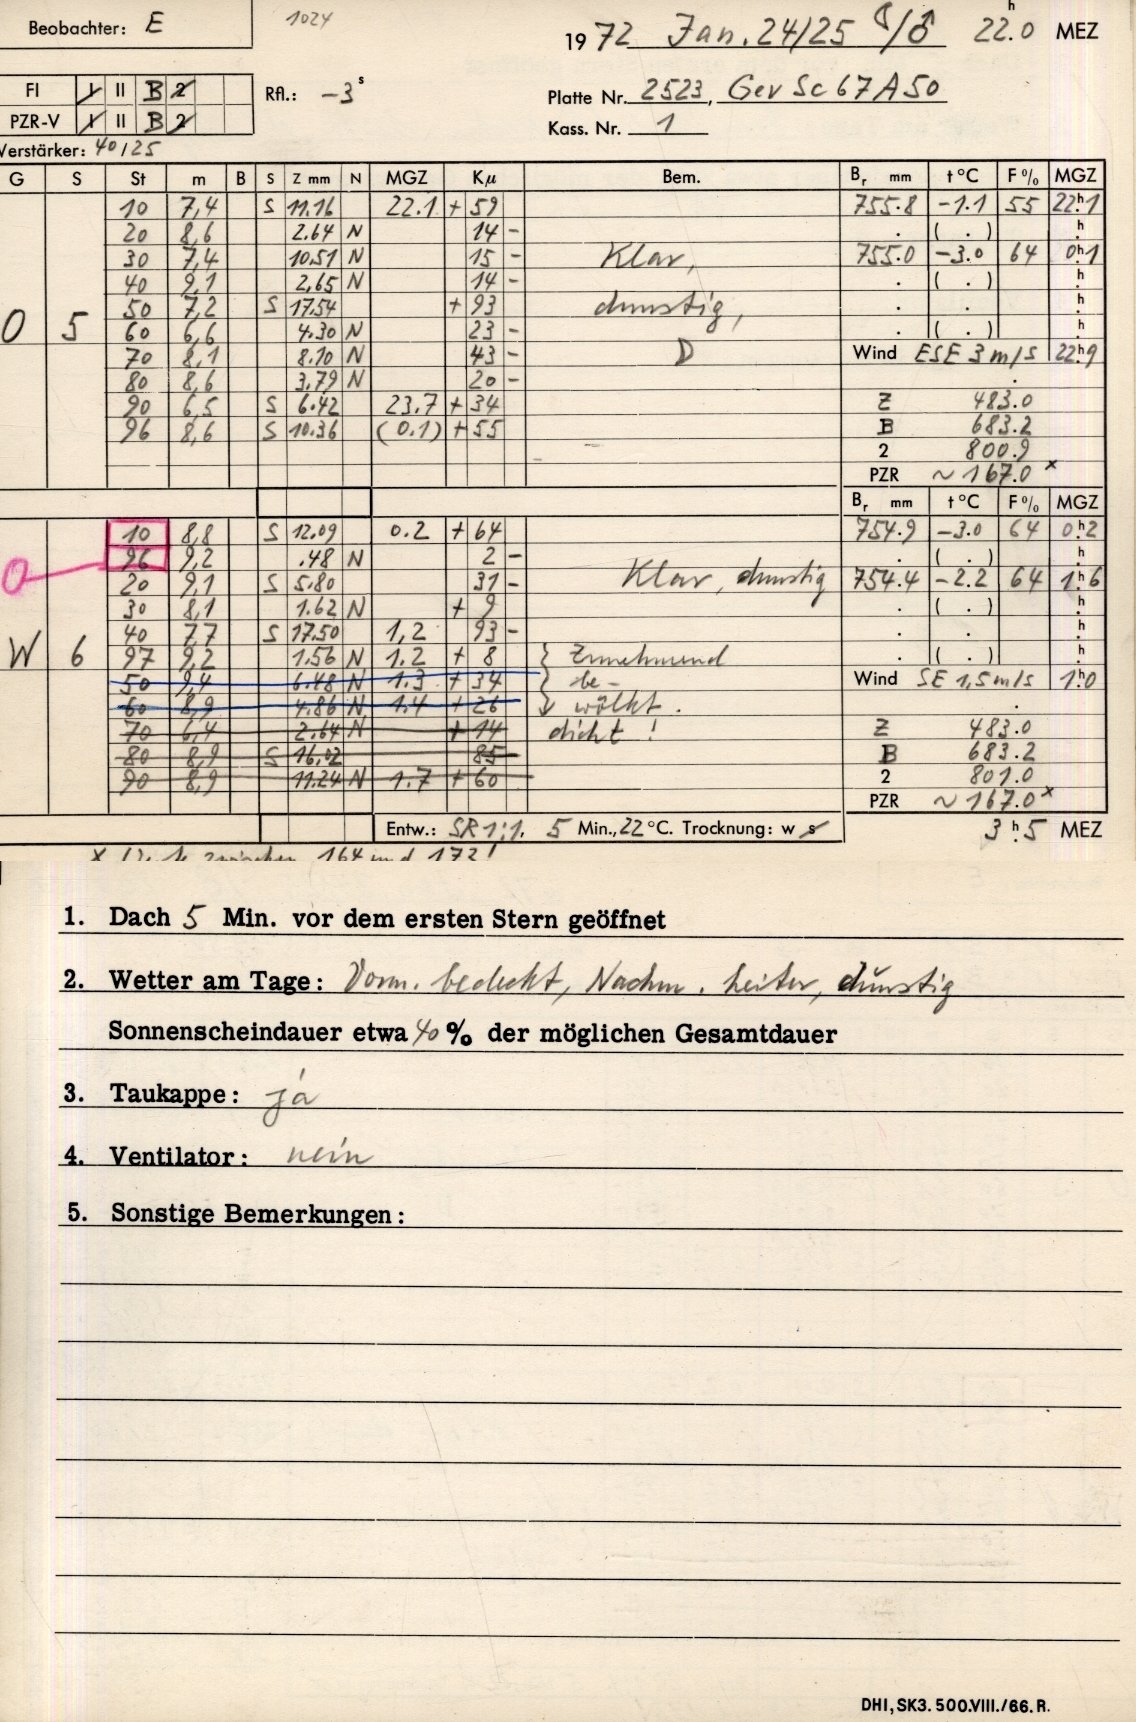 Beobachter: E 1024
1972 Jan. 24/25 ☾/♂ 22.0 h MEZ
FI I II B 2 Rfl.: -3 s
Platte Nr. 2523, Gev Sc 67 A 50
PZR-V I II B 2
Kass. Nr. 1
Verstärker: 40/25
G S St m B S Z mm N MGZ Kμ Bem. Br mm t °C F % MGZ
10 7,4 S 11.16 22.1 + 59 755.8 -1.1 55 22h1
20 8,6 2.64 N 14 - . ( . ) h
30 7,4 10.51 N 15 - Klar, 755.0 -3.0 64 0h1
40 9,1 2,65 N 14 - . ( . ) h
50 7,2 S 17.54 + 93 dunstig, . . h
O 5 60 6,6 4.30 N 23 - . ( . ) h
70 8,1 8.10 N 43 - D Wind ESE 3 m/s 22h9
80 8,6 3.79 N 20 - .
90 6,5 S 6.42 23.7 + 34 Z 483.0
96 8,6 S 10.36 (0.1) + 55 B 683.2
2 800.9
PZR ~167.0 x
Br mm t °C F % MGZ
10 8,8 S 12.09 0.2 + 64 754.9 -3.0 64 0h2
96 9,2 .48 N 2 - . ( . ) h
O 20 9,1 S 5.80 31 - Klar, dunstig 754.4 -2.2 64 1h6
30 8,1 1.62 N + 9 . ( . ) h
40 7,7 S 17.50 1,2 93 - . . h
W 6 97 9,2 1.56 N 1.2 + 8 } Zunehmend . ( . ) h
50 9,4 6.48 N 1.3 + 34 be- Wind SE 1,5 m/s 1h0
60 8,9 4.86 N 1.4 + 26 wölkt. .
70 6,4 2.64 N + 14 dicht! Z 483.0
80 8,9 S 16.02 85 - B 683.2
90 8,9 11.24 N 1.7 + 60 2 801.0
PZR ~167.0 x
Entw.: SR 1:1, 5 Min., 22 °C. Trocknung: w s 3 h 5 MEZ
x zwischen 164 und 172!
1. Dach 5 Min. vor dem ersten Stern geöffnet
2. Wetter am Tage: Vorm. bedeckt, Nachm. heiter, dunstig
Sonnenscheindauer etwa 40 % der möglichen Gesamtdauer
3. Taukappe: ja
4. Ventilator: nein
5. Sonstige Bemerkungen:
DHI, SK3. 500.VIII./66. R.